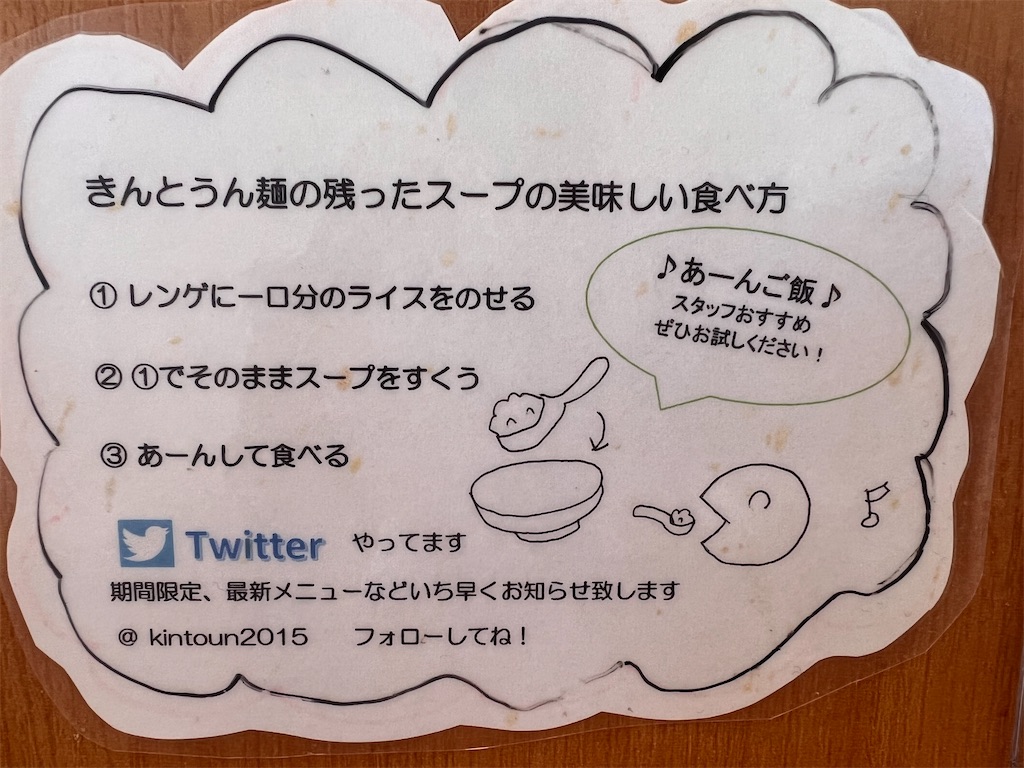 きんとうん麺の残ったスープの美味しい食べ方
♪あーんご飯♪
スタッフおすすめ
ぜひお試しください！
① レンゲに一口分のライスをのせる
② ①でそのままスープをすくう
③ あーんして食べる
Twitter やってます
期間限定、最新メニューなどいち早くお知らせ致します
@ kintoun2015 フォローしてね！